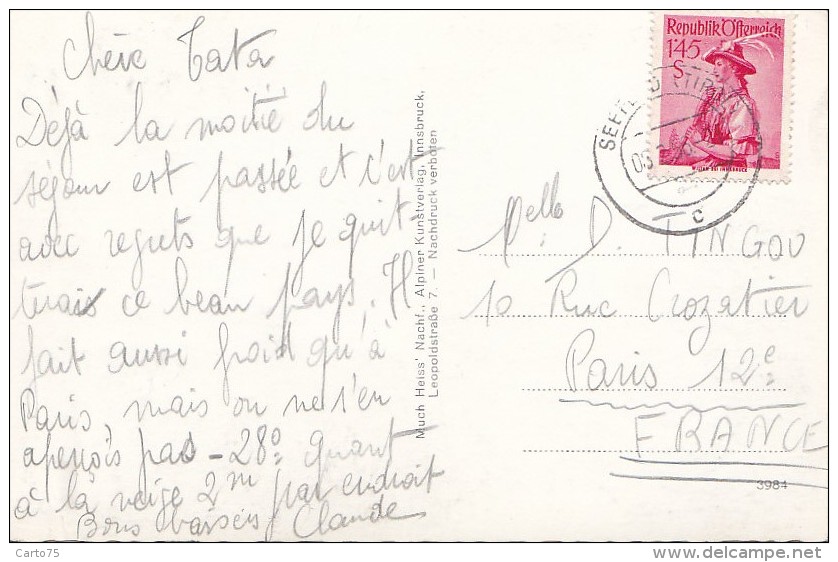 Chère Tata
Déjà la moitié du
séjour est passée et c'est
avec regrets que je quit
terais ce beau pays. Il
fait aussi froid qu'à
Paris, mais on ne s'en
aperçois pas - 28° quant
à la neige 2m par endroit
Bons baisers Claude
Much Heiss' Nachf., Alpiner Kunstverlag, Innsbruck,
Leopoldstraße 7. — Nachdruck verboten
Republik Österreich
1'45
S
SEEFELD (TIROL)
c
Melle D. TINGOU
10 Rue Crozatier
Paris 12e
FRANCE
3984
Carto75
www.delcampe.net